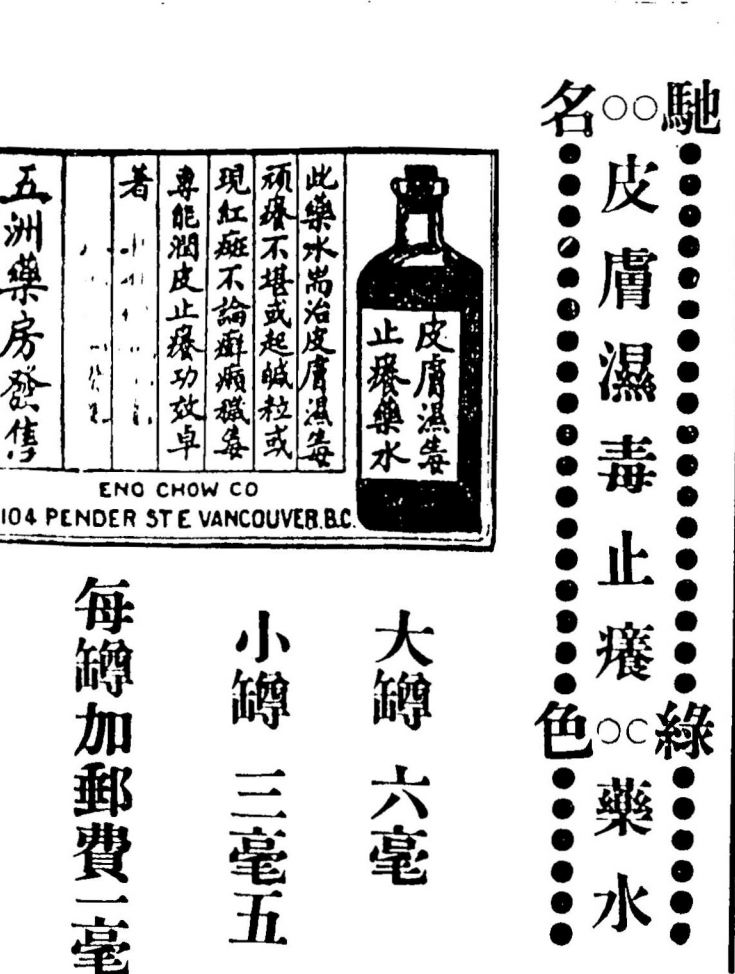 馳名
皮膚濕毒止癢
綠色
藥水
皮膚濕毒
止癢藥水
此藥水耑治皮膚濕毒
頑癢不堪或起鹹粒或
現紅斑不論癬癩穢毒
專能潤皮止癢功效卓
著
五洲藥房發售
ENG CHOW CO
104 PENDER ST E VANCOUVER. B.C.
大罇 六毫
小罇 三毫五
每罇加郵費一毫